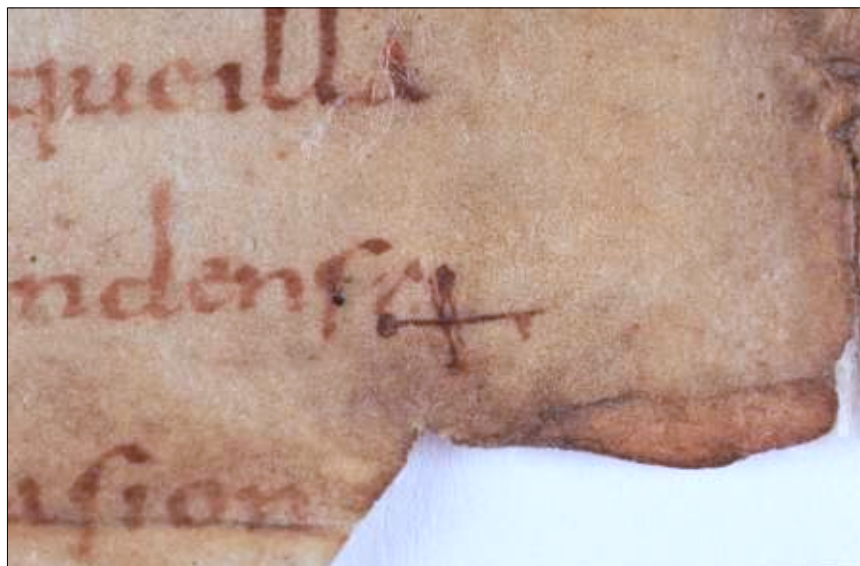 queilla
ndense
usion